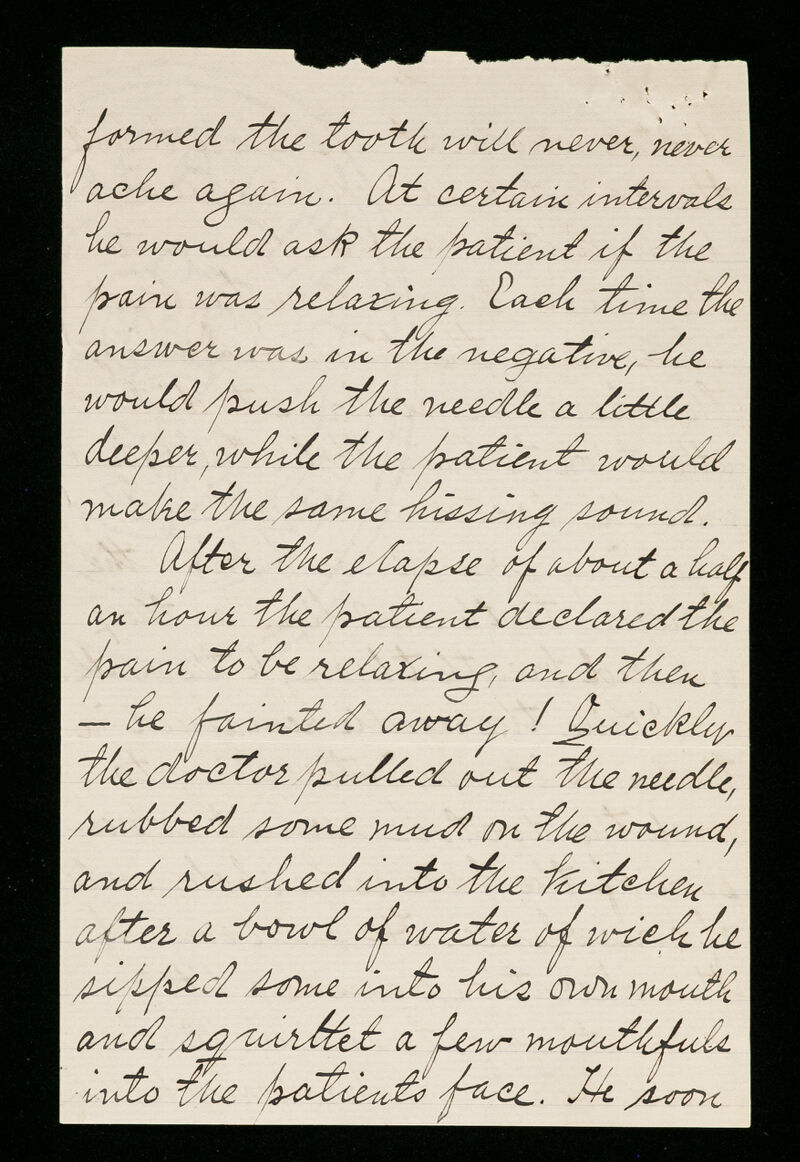 formed the tooth will never, never
ache again. At certain intervals
he would ask the patient if the
pain was relaxing. Each time the
answer was in the negative, he
would push the needle a little
deeper, while the patient would
make the same hissing sound.
After the elapse of about a half
an hour the patient declared the
pain to be relaxing, and then
— he fainted away! Quickly
the doctor pulled out the needle,
rubbed some mud on the wound,
and rushed into the kitchen
after a bowl of water of wich he
sipped some into his own mouth
and squirttet a few mouthfuls
into the patients face. He soon